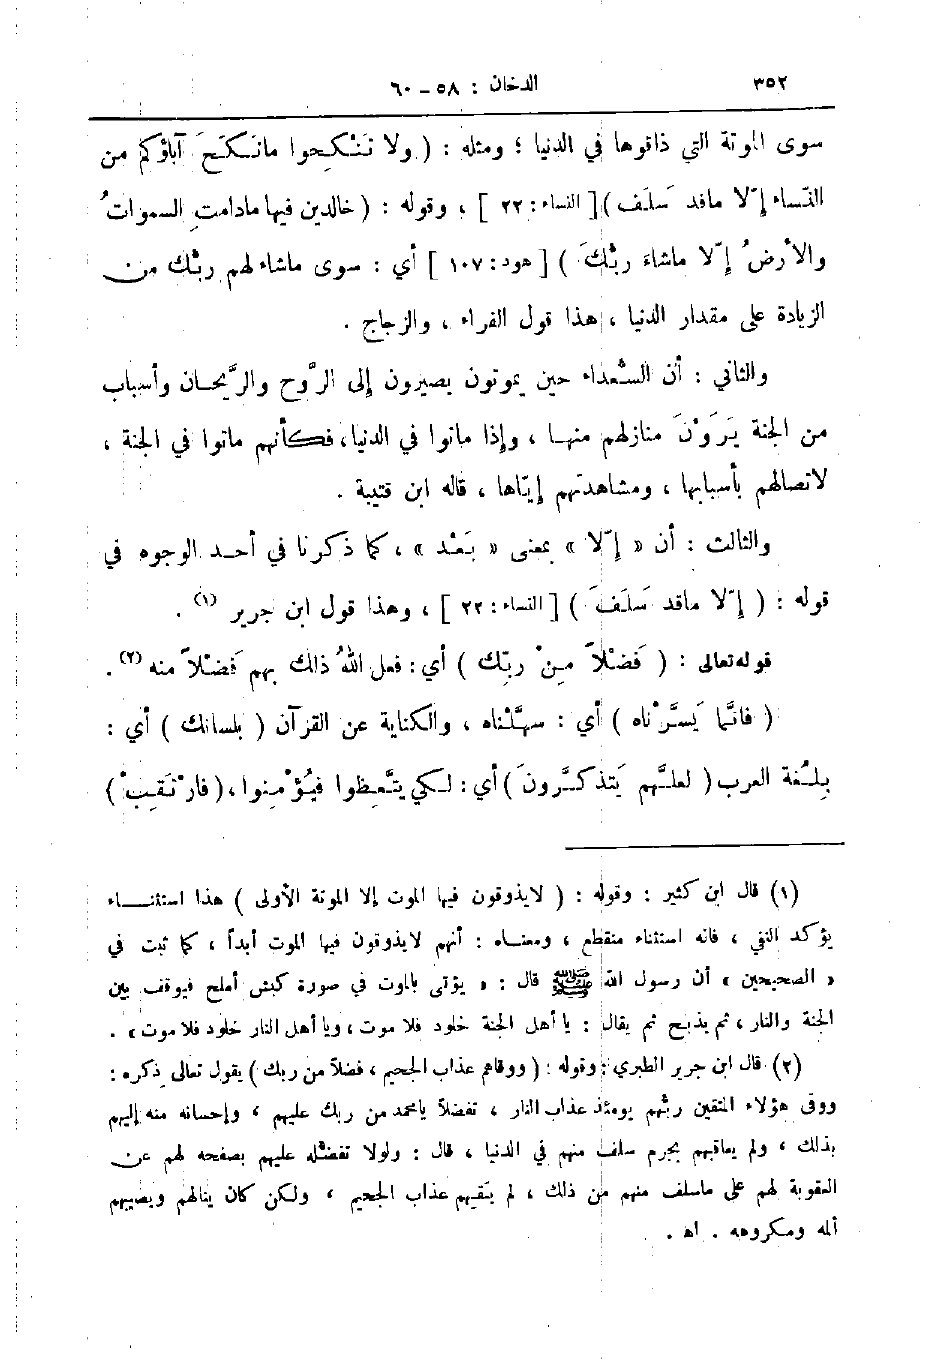 ٣٥٢ الدخان : ٥٨ ـ ٦٠
سوى الموتة التي ذاقوها في الدنيا ؛ ومثله : ( ولا تَنْكِحوا مانَكَحَ آباؤكم من
النِّساء إِلّا ماقد سَلَف ) [ النساء : ٢٢ ] ، وقوله : ( خالدين فيها مادامتِ السمواتُ
والأرضُ إِلّا ماشاءَ ربُّكَ ) [ هود : ١٠٧ ] أي : سوى ماشاء لهم ربُّك من
الزيادة على مقدار الدنيا ، هذا قول الفراء ، والزجاج .
والثاني : أن السُّعداء حين يموتون يصيرون إِلى الرَّوح والرَّيحان وأسباب
من الجنة يَرَوْنَ منازلهم منها ، وإِذا ماتوا في الدنيا، فكأنهم ماتوا في الجنة ،
لاتصالهم بأسبابها ، ومشاهدتهم إِيّاها ، قاله ابن قتيبة .
والثالث : أن « إِلّا » بمعنى « بَعْد » ، كما ذكرنا في أحد الوجوه في
قوله : ( إِلّا ماقد سَلَفَ ) [ النساء : ٢٢ ] ، وهذا قول ابن جرير (١) .
قوله تعالى : ( فَضْلاً مِنْ ربِّك ) أي : فعل اللهُ ذلك بهم فَضْلاً منه (٢) .
( فانَّما يَسَّرْناه ) أي : سهَّلْناه ، والكناية عن القرآن ( بلسانك ) أي :
بِلُغة العرب ( لعلَّهم يَتذكَّرونَ ) أي : لكي يتَّعِظوا فيُؤْمِنوا ، ( فارْتَقِبْ )
(١) قال ابن كثير : وقوله : ( لايذوقون فيها الموت إلا الموتة الأولى ) هذا استثناء
يؤكد النفي ، فانه استثناء منقطع ، ومعناه : أنهم لايذوقون فيها الموت أبداً ، كما ثبت في
« الصحيحين » أن رسول الله ﷺ قال : « يؤتى بالموت في صورة كبش أملح فيوقف بين
الجنة والنار ، ثم يذبح ثم يقال : يا أهل الجنة خلود فلا موت ، ويا أهل النار خلود فلا موت » .
(٢) قال ابن جرير الطبري : وقوله : ( ووقاهم عذاب الجحيم ، فضلاً من ربك ) يقول تعالى ذكره :
ووقى هؤلاء المتقين ربُّهم يومئذ عذاب النار ، تفضلاً يامحمد من ربك عليهم ، وإحسانه منه إليهم
بذلك ، ولم يعاقبهم بجرم سلف منهم في الدنيا ، قال : ولولا تفضُّله عليهم بصفحه لهم عن
العقوبة لهم على ماسلف منهم من ذلك ، لم يَقِهم عذاب الجحيم ، ولكن كان ينالهم ويصيبهم
ألمه ومكروهه . اه .